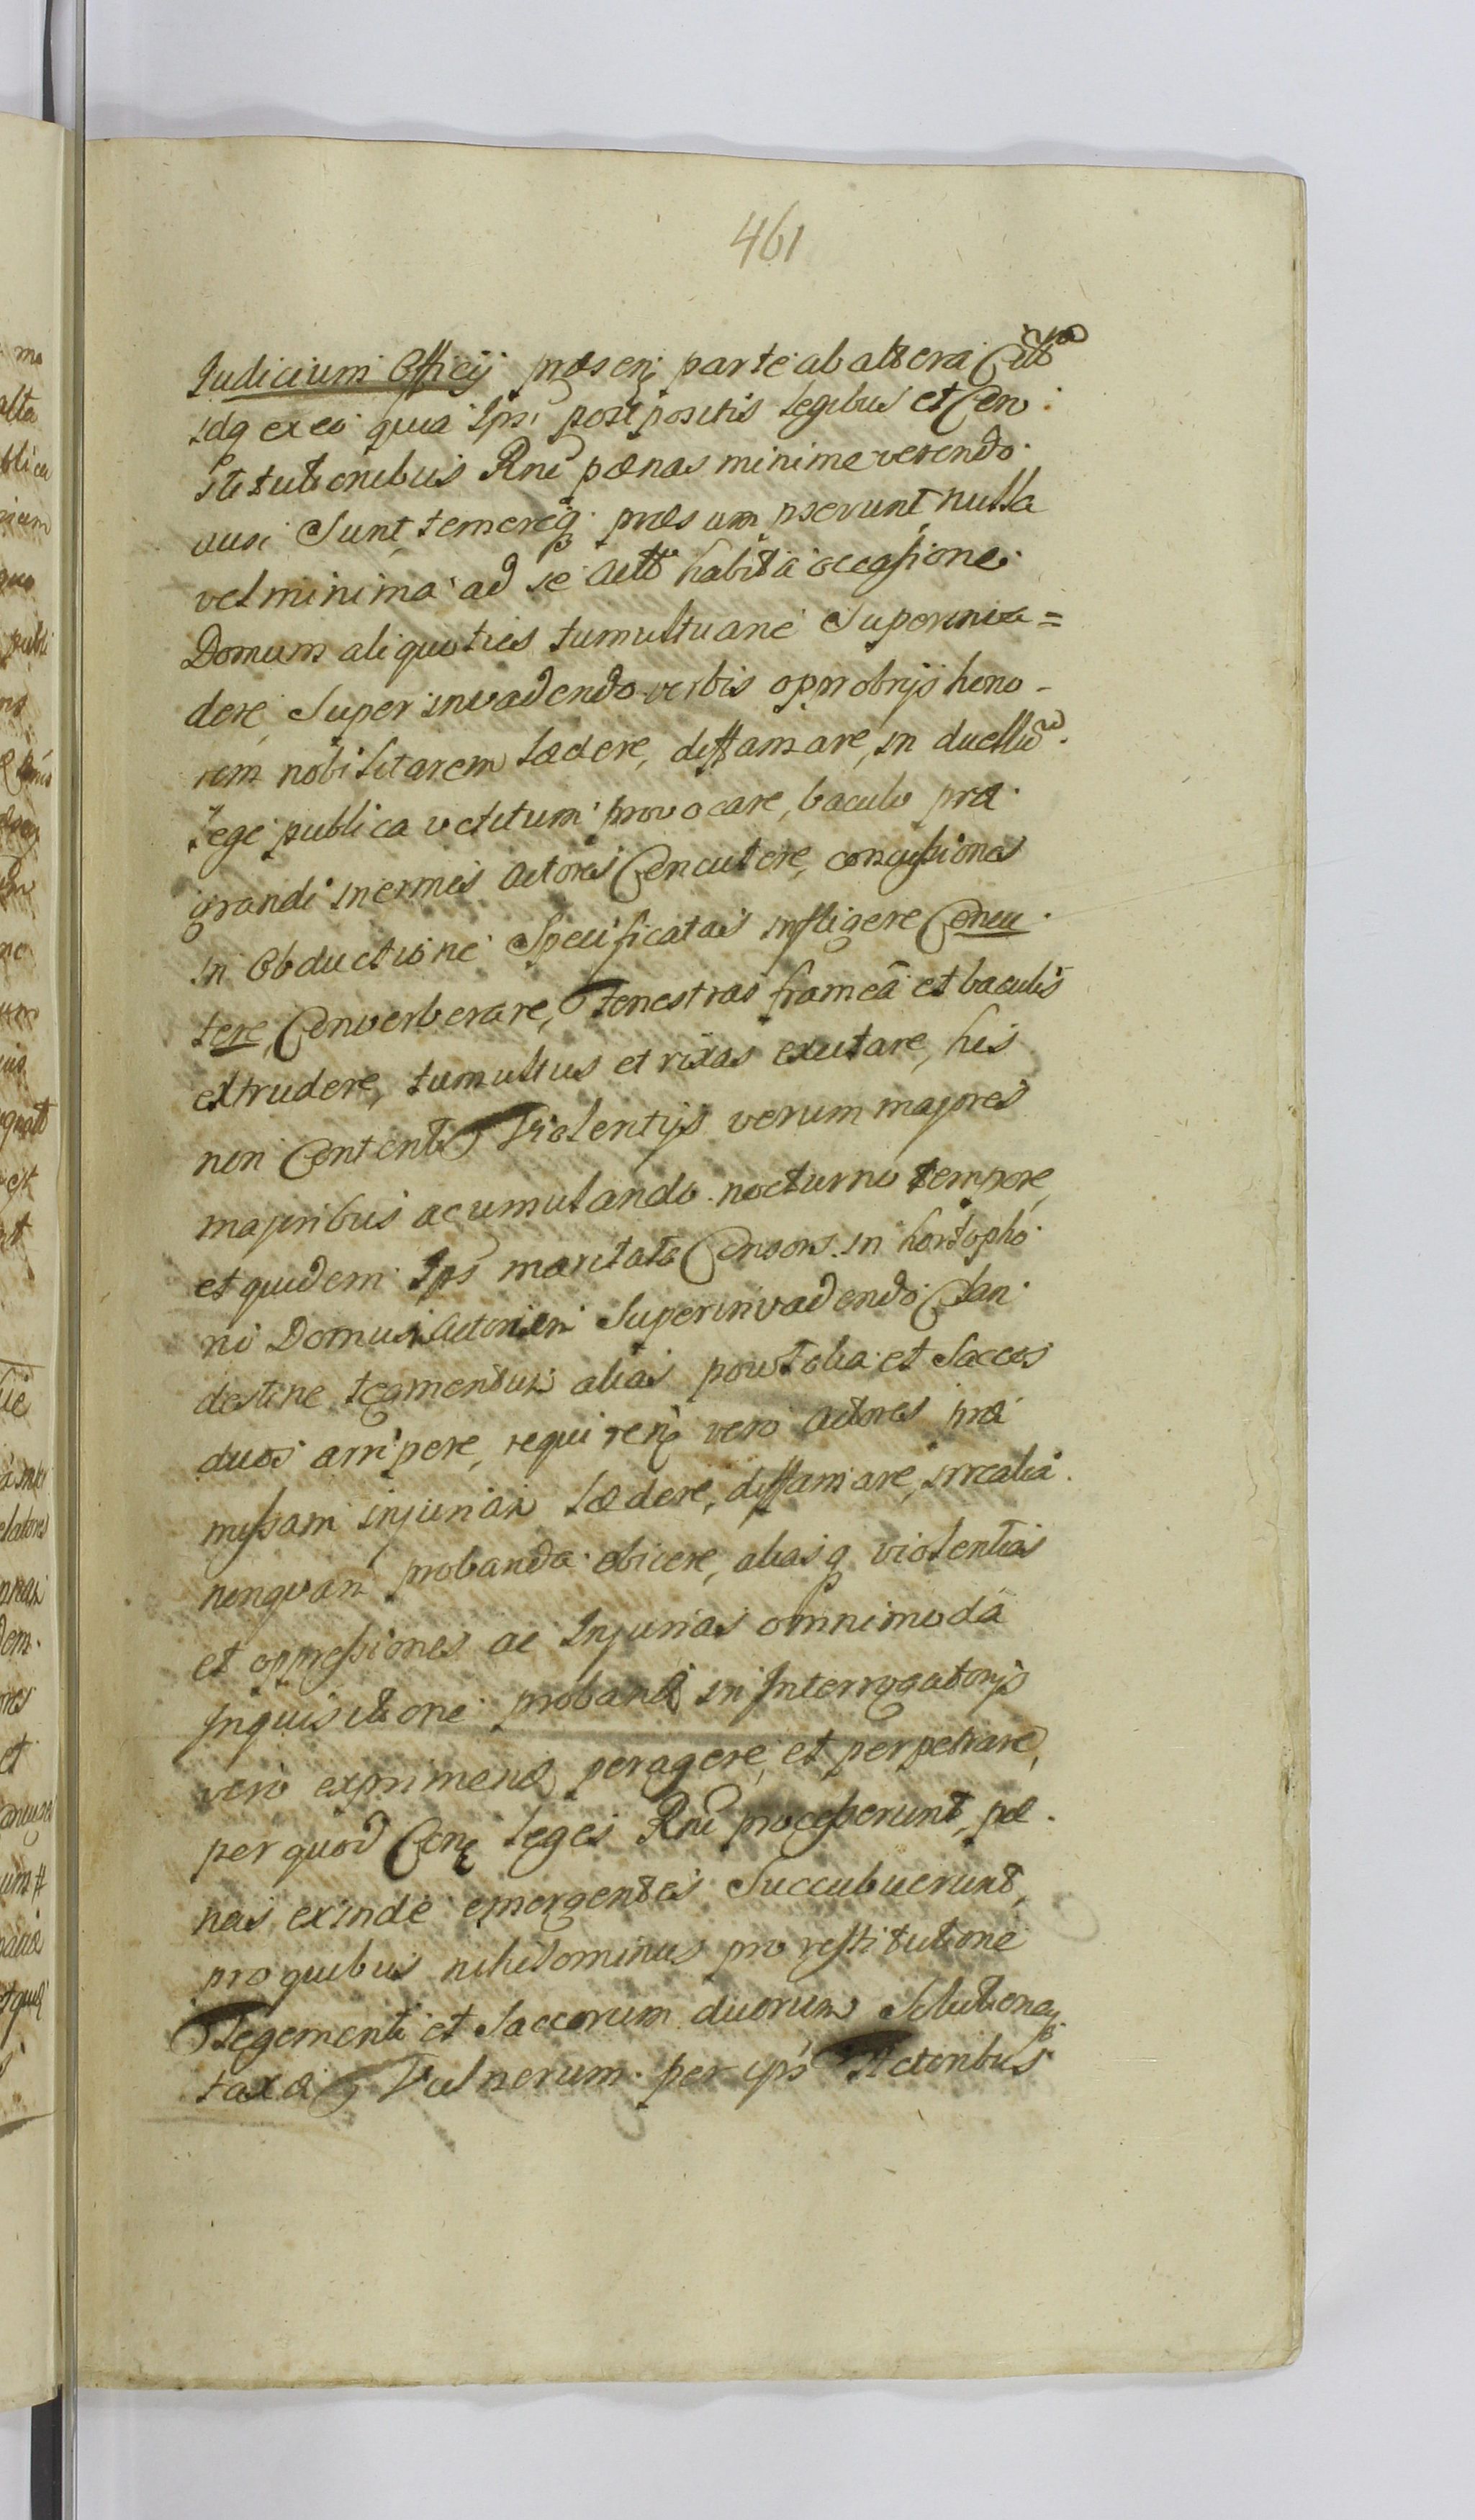 461
Judicium Officij præsenƺ parte ab altera Citto
Idq ex eo quia Ipsi postpositis Legibus et Con
stitutionibus Rni pænas minime verendo
ausi Sunt, temereq præsumpserunt nulla
vel minima ad se Actto habita occasione
Domum aliquoties tumultuarie Superinva=
dere Superinvadendo verbis opprobrijs hono-
rem nobilitarem Lædere, diffamare, in duellũ
Lege publica vetitum provocare, baculo præ
grandi inermes Actores Concutere, concussiones
in Obductione Specificatas infligere Concu
tere, Converberare, Fenestras frameâ et baculis
extrudere, tumultus et rixas excitare, his
non Contenti Violentijs verum majores
majoribus acumulando nocturno tempore,
et quidem Ips maritata Consors in hortopho
ni Domus Actorum Superinvadendo Clan
destine tegmentum alias powtolia et Saccos
duos arripere, requirenƺ vero Actores præ
missam injuriam Lædere, diffamare, irrealia
nonquam probanda obicere, aliasq violentias
et oppressiones ac Injurias omnimoda
Inquisitione proband in Interrogatorijs
vero exprimend peragere, et perpetrare,
per quod Conƺ Leges Rni processerunt, pæ
nas exinde emergentes Succubuerunt,
pro quibus nihilominus pro restitutione
Tegementi et Saccorum duorum Solutioneq
taxæ Vulnerum per ips Actoribus